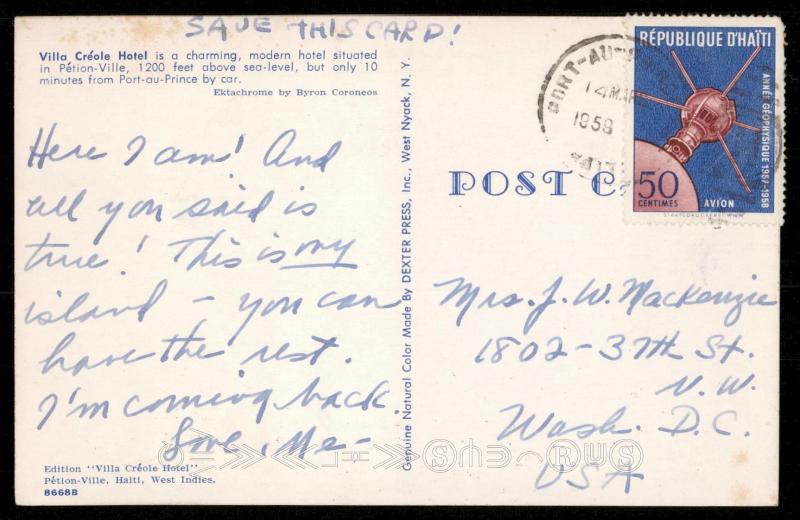 SAVE THIS CARD!
Villa Créole Hotel is a charming, modern hotel situated
in Pétion-Ville, 1200 feet above sea-level, but only 10
minutes from Port-au-Prince by car.
Ektachrome by Byron Coroneos
Here I am! And
all you said is
true! This is my
island – you can
have the rest.
I'm coming back.
Love, Me –
Edition "Villa Créole Hotel"
Pétion-Ville, Haiti, West Indies.
8668B
Genuine Natural Color Made By DEXTER PRESS, Inc., West Nyack, N. Y.
POST C
PORT-AU-
14 MAR
1958
RÉPUBLIQUE D'HAÏTI
ANNÉE GÉOPHYSIQUE 1957-1958
50
CENTIMES
AVION
STAATSDRUCKEREI WIEN
Mrs. J. W. Mackenzie
1802-37th St.
N.W.
Wash. D.C.
USA